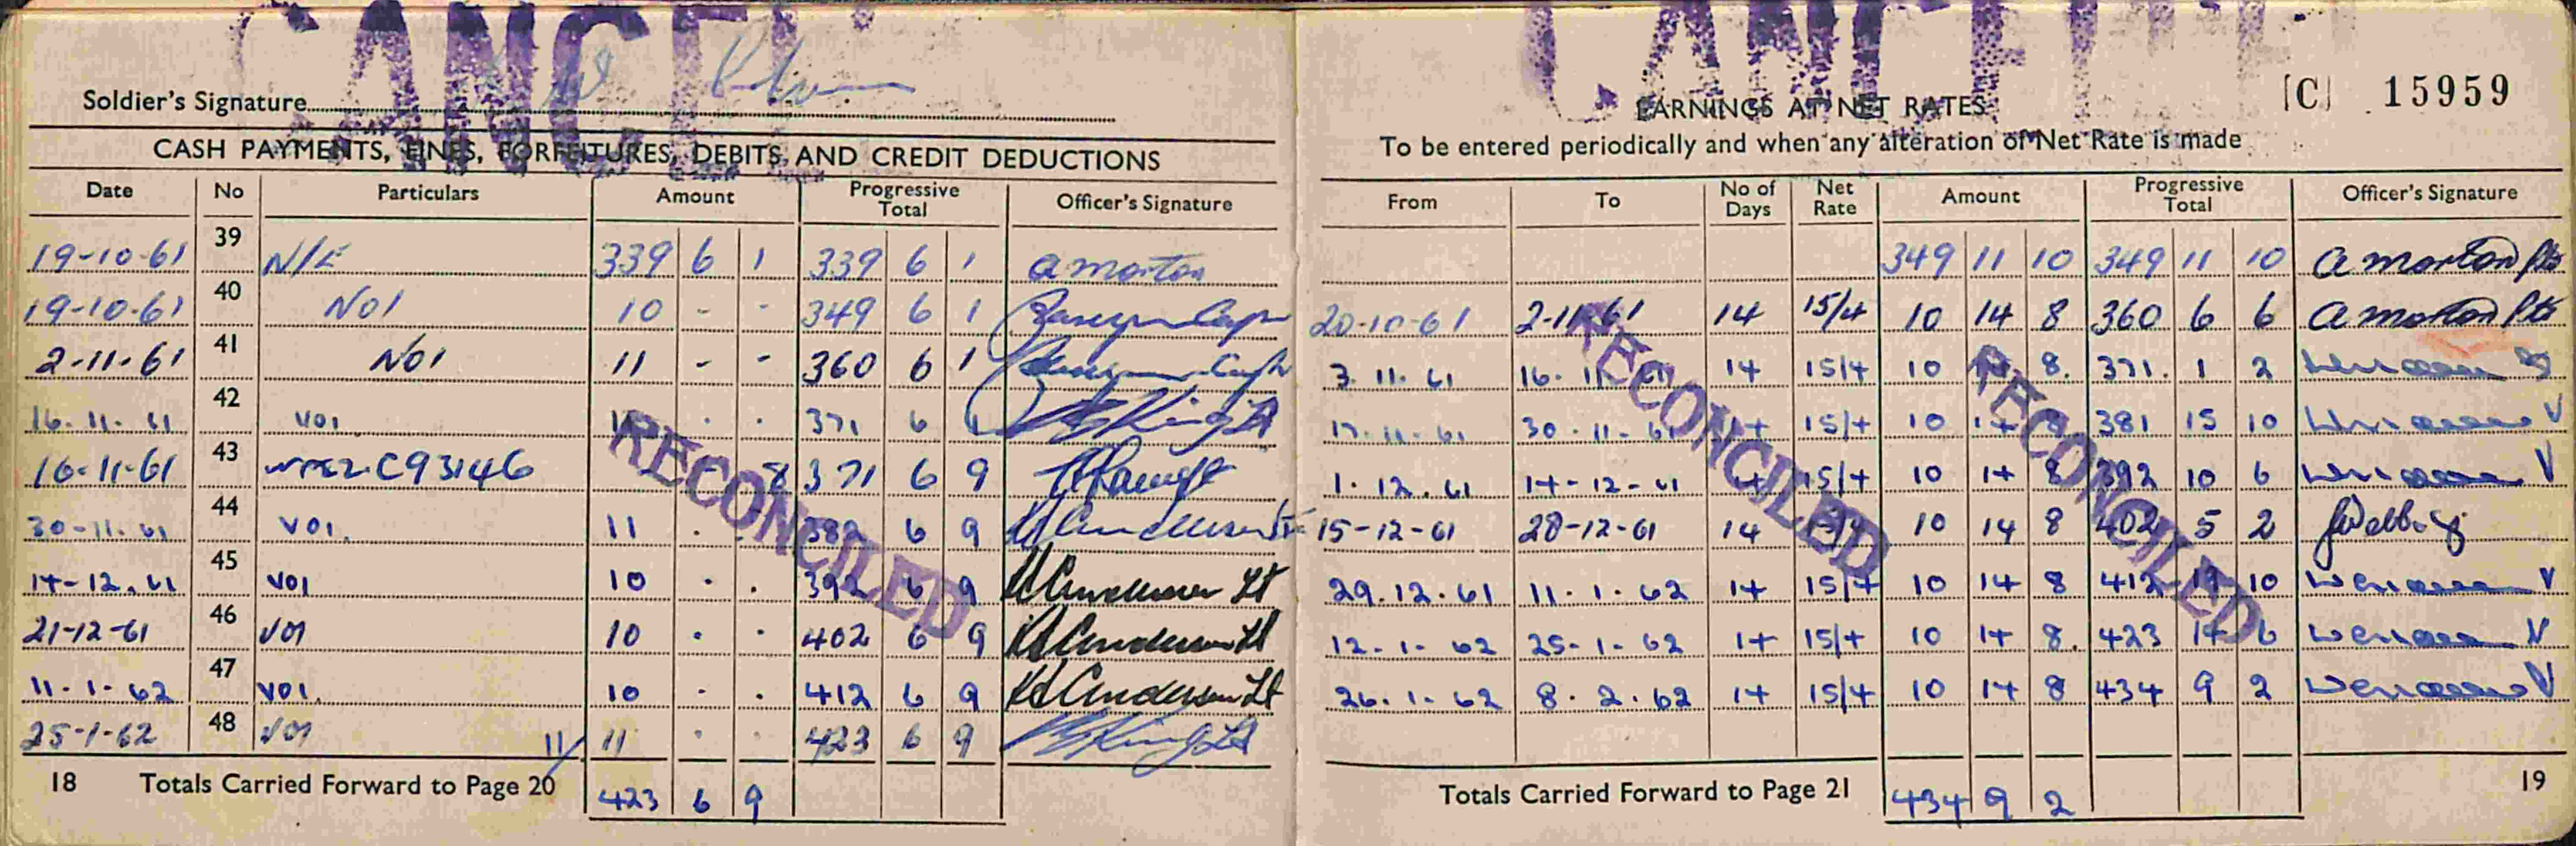 CANCEL
CANCEL
Soldier's Signature
CASH PAYMENTS, FINES, FORFEITURES, DEBITS, AND CREDIT DEDUCTIONS
Date No Particulars Amount Progressive Total Officer's Signature
19-10-61 39 N/E 339 6 1 339 6 1 a morton
19-10-61 40 NO1 10 - - 349 6 1
2-11-61 41 NO1 11 - - 360 6 1
16.11.61 42 VO1 . . 371 6 1
16-11-61 43 C93146 8 371 6 9
30-11-61 44 VO1. 11 . . 382 6 9
14-12.61 45 VO1 10 . . 392 6 9 Anderson Lt
21-12-61 46 VO1 10 . . 402 6 9 Anderson Lt
11-1-62 47 VO1. 10 . . 412 6 9 Anderson Lt
25-1-62 48 VO1 11/ 11 . . 423 6 9 King Lt
RECONCILED
18 Totals Carried Forward to Page 20 423 6 9
[C] 15959
EARNINGS AT NET RATES
To be entered periodically and when any alteration of Net Rate is made
From To No of Days Net Rate Amount Progressive Total Officer's Signature
349 11 10 349 11 10 a morton Pte
20-10-61 2-11-61 14 15/4 10 14 8 360 6 6 a morton Pte
3.11.61 16.11.61 14 15/4 10 14 8. 371. 1 2
17.11.61 30.11.61 14 15/4 10 14 8 381 15 10
1.12.61 14-12-61 14 15/4 10 14 8 392 10 6
15-12-61 28-12-61 14 15/4 10 14 8 402 5 2
29.12.61 11.1.62 14 15/4 10 14 8 412 19 10
12.1.62 25-1.62 14 15/4 10 14 8. 423 14 6
26.1.62 8.2.62 14 15/4 10 14 8 434 9 2
RECONCILED
RECONCILED
Totals Carried Forward to Page 21 434 9 2
19